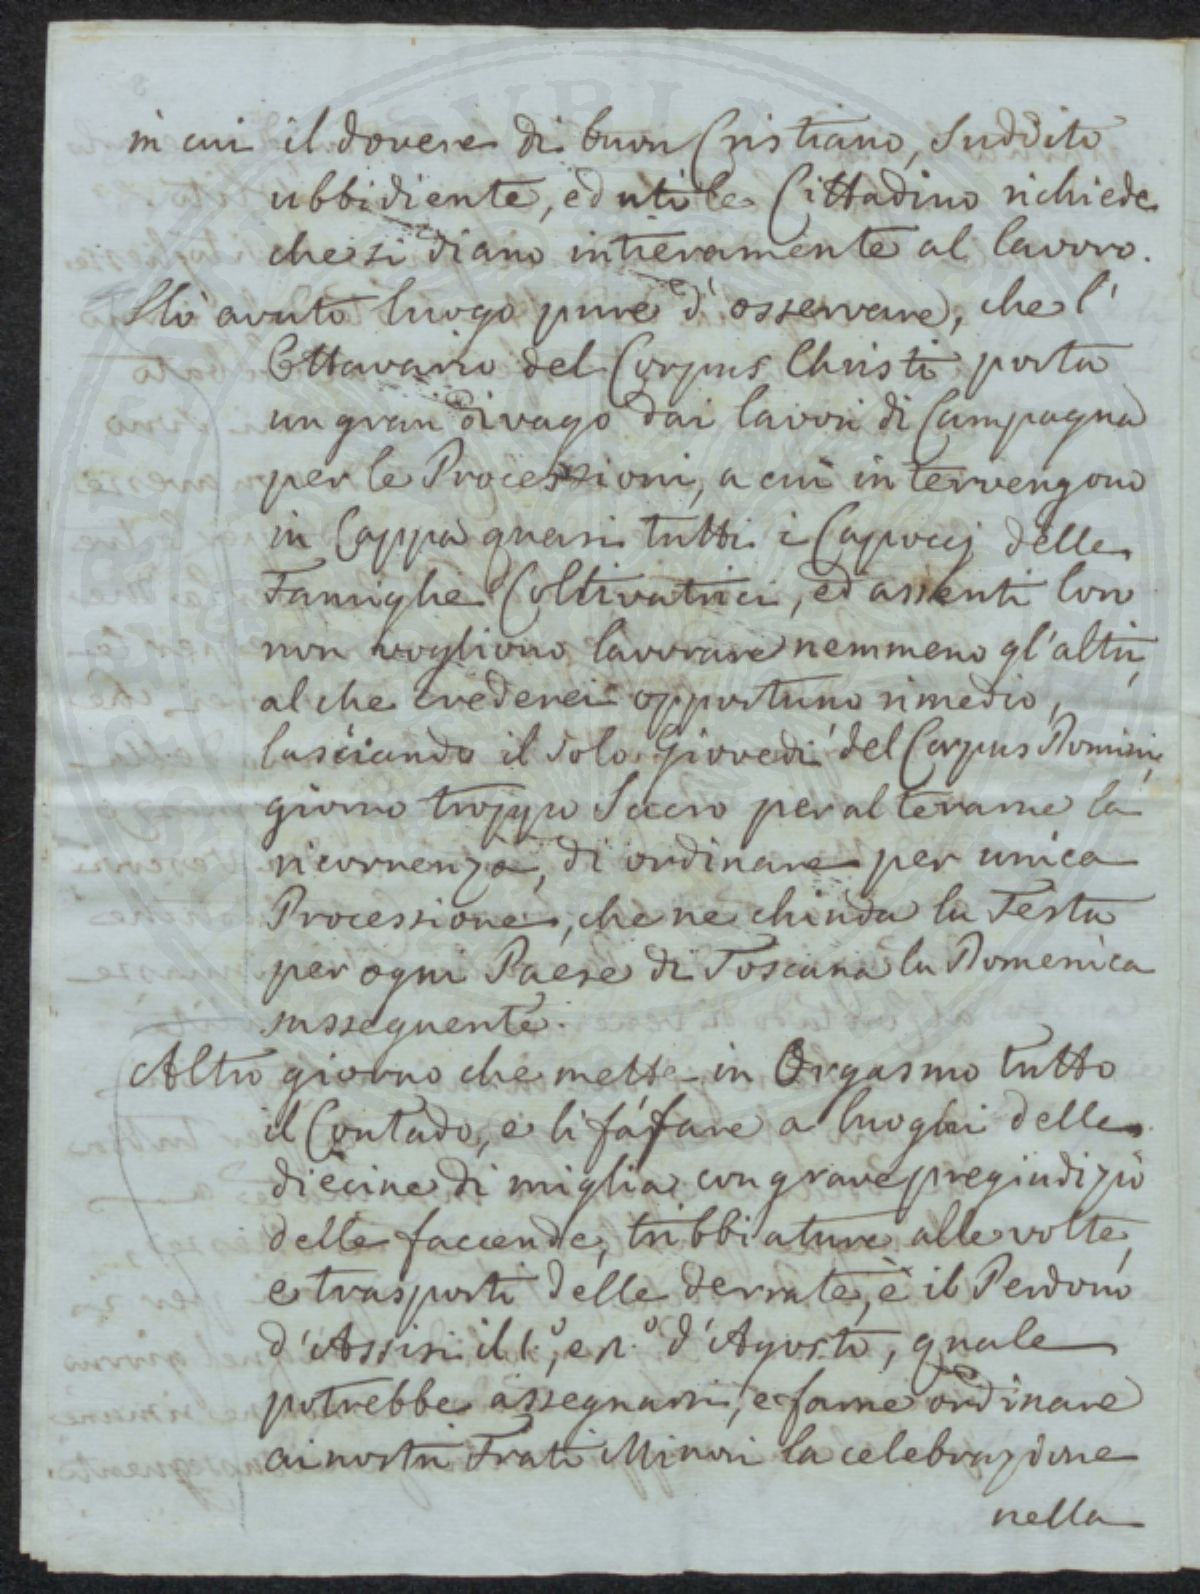 in cui il dovere di buon Cristiano, Suddito
ubbidiente, ed utile Cittadino richiede
che si diano intieramente al lavoro.
Hò avuto luogo pure d' osservare, che l'
Ottavario del Corpus Christi porta
un gran divago dai lavori di Campagna
per le Processioni, a cui intervengono
in Cappa quasi tutti i Capoccj delle
Famiglie Coltivatrici, ed assenti loro
non vogliono lavorare nemmeno gl'altri,
al che crederei opportuno rimedio,
lasciando il solo Giovedì del Corpus Domini,
giorno troppo Sacro per alterarne la
ricorrenza, di ordinare per unica
Processione, che ne chiuda la Festa
per ogni Paese di Toscana la Domenica
susseguente.
Altro giorno che mette in Orgasmo tutto
il Contado, e li fá fare a luoghi delle
diecine di miglia con grave pregiudizio
delle faccende, tribbiature alle volte,
e trasporti delle derrate, è il Perdono
d'Assisi il 1.º, e 2.º d'Agosto, quale
potrebbe assegnarsi, e farne ordinare
ai nostri Frati Minori la celebrazione
nella